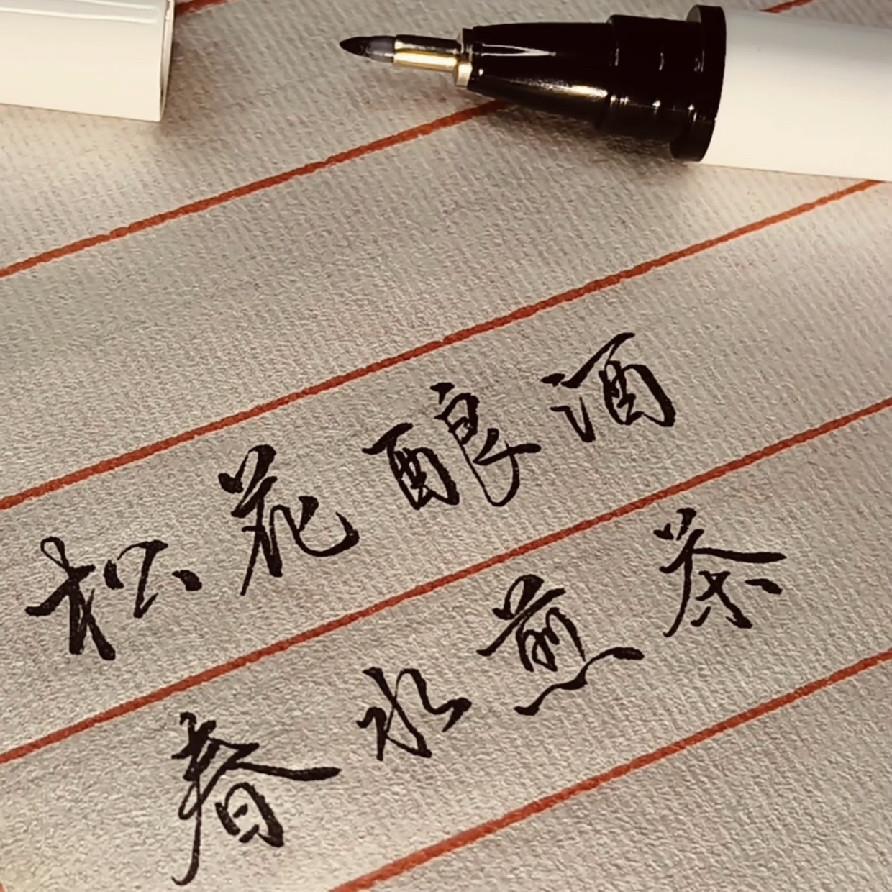 松花酿酒
春水煎茶